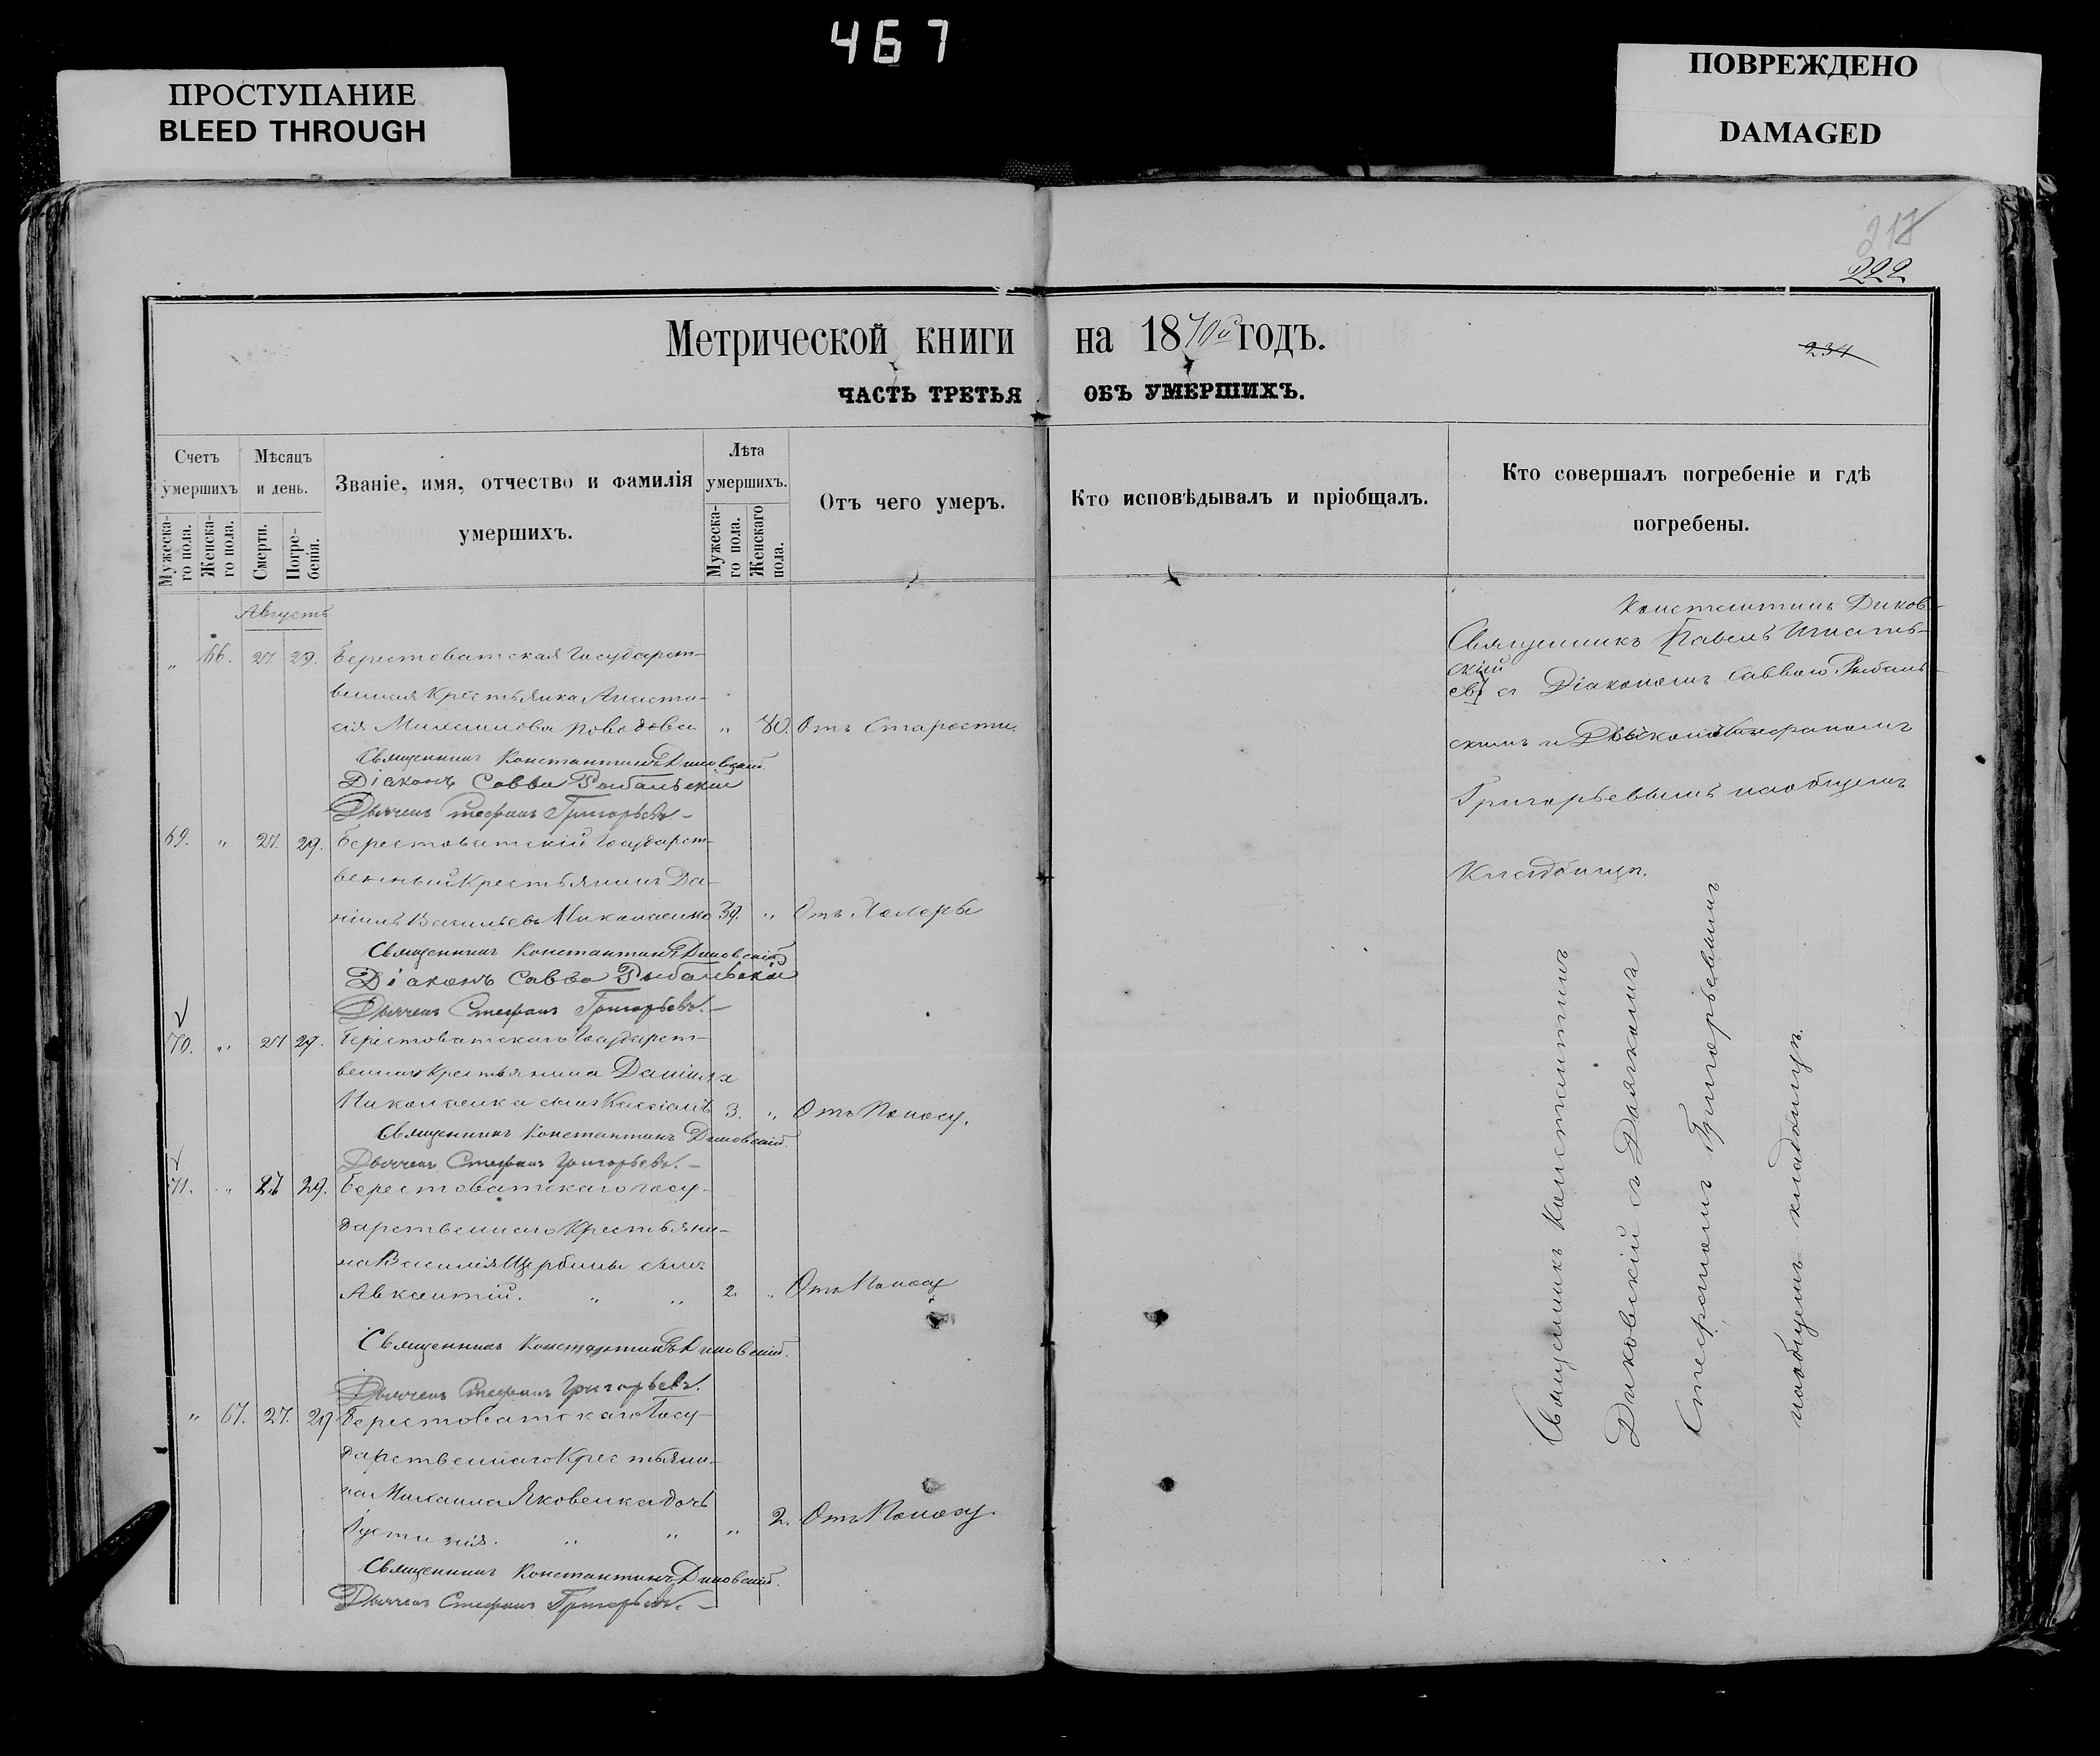 467
ПРОСТУПАНИЕ
BLEED THROUGH
ПОВРЕЖДЕНО
DAMAGED
217
222
234
Метрической книги на 1870й годъ.
ЧАСТЬ ТРЕТЬЯ ОБЪ УМЕРШИХЪ.
Счетъ умершихъ
Мужеска-го пола.
Женска-го пола.
Мѣсяцъ и день.
Смерти.
Погре-бенія.
Званіе, имя, отчество и фамилія умершихъ.
Лѣта умершихъ.
Мужеска-го пола.
Женскаго пола.
Отъ чего умеръ.
Кто исповѣдывалъ и пріобщалъ.
Кто совершалъ погребеніе и гдѣ погребены.
Августъ
„ 66. 27. 29. Берестоватская Государст-
венная Крестьянка Анаста-
сія Михаилова „ 80. Отъ Старости.
Священникъ Константинъ Диковскій.
Діаконъ Савва Рыбальскій
Дьячекъ Стефанъ Григорьевъ.
69. „ 27. 29. Берестоватскій Государст-
венный Крестьянинъ Да-
ніилъ Васильевъ Николаенко 39. „ Отъ Холеры
Священникъ Константинъ Диковскій
Діаконъ Савва Рыбальскій
Дьячекъ Стефанъ Григорьевъ.
70. „ 27 29. Берестоватскаго Государст-
веннаго Крестьянина Даніила
Николаенка сынъ 3. „ Отъ Поносу.
Священникъ Константинъ Диковскій.
Дьячекъ Стефанъ Григорьевъ.
71. „ 27 29. Берестоватскаго Госу-
дарственнаго Крестьяни-
на Василія Щербины сынъ
Авксентій. „ „ 2. „ Отъ Поносу
Священникъ Константинъ Диковскій.
Дьячекъ Стефанъ Григорьевъ.
„ 67. 27. 29 Берестоватскаго Госу-
дарственнаго Крестьяни-
на Михаила Яковенка дочь
Іустинія. „ „ „ 2. Отъ Поносу.
Священникъ Константинъ Диковскій.
Дьячекъ Стефанъ Григорьевъ.
Константинъ Диков-
Священникъ Павелъ Игнать-
скій
евъ съ Діакономъ Саввою Рыбаль-
скимъ и Стефаномъ
Григорьевымъ на общемъ
Кладбищѣ.
Священникъ Константинъ
Диковскій съ Дьячкомъ
Стефаномъ Григорьевымъ
на общемъ кладбищѣ.